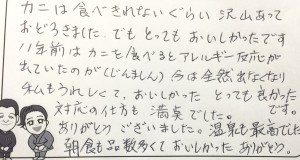 カニは食べきれないぐらい沢山あって
おどろきました。でもとってもおいしかったです
11年前はカニを食べるとアレルギー反応が
出ていたのが(じんましん)今は全然出なくなり
私もうれしくて、おいしかった とっても良かった
です。
対応の仕方も満点でした。
ありがとうございました。温泉も最高でした
朝食も品数多くておいしかった ありがとう。